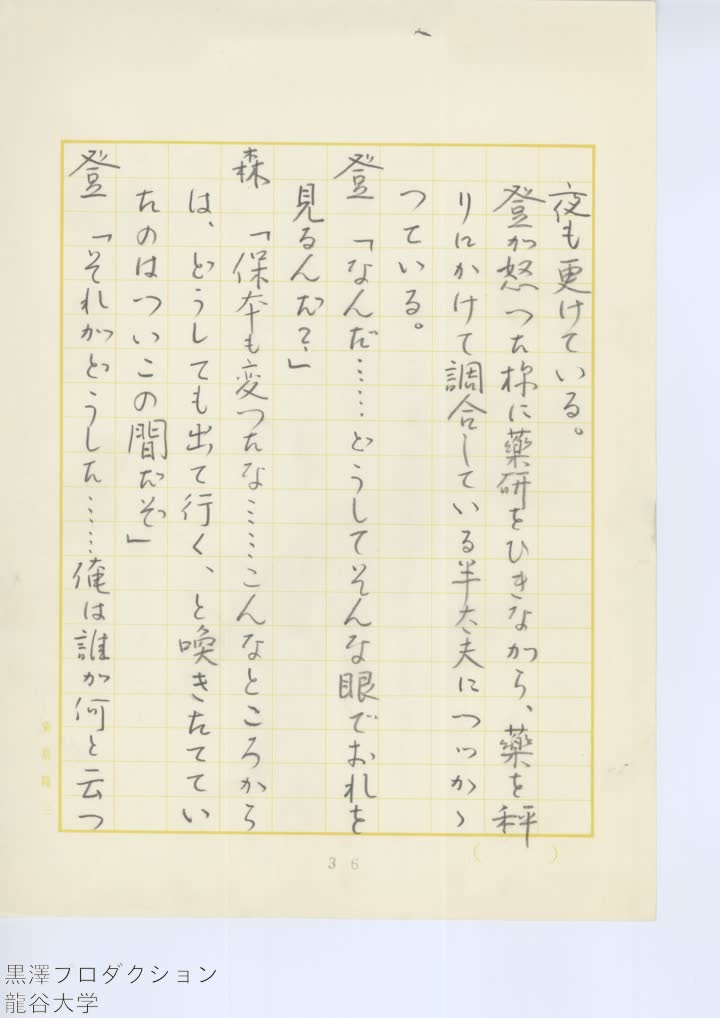 夜も更けている。
登が怒つた様に薬研をひきながら、薬を秤
りにかけて調合している半太夫につっかゝ
つている。
登「なんだ……どうしてそんな眼でおれを
見るんだ？」
森「保本も変つたな……こんなところから
は、どうしても出て行く、と喚きたててい
たのはついこの間だぞ」
登「それがどうした……俺は誰が何と云つ
( )
36
黒澤プロダクション
龍谷大学